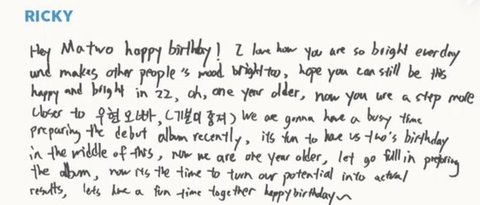 RICKY
Hey Matwo happy birthday! I love how you are so bright everday
and makes other people's mood bright too, hope you can still be this
happy and bright in 22, oh, one year older, now you are a step more
closer to 우현 오빠, (기분이 좋지) We are gonna have a busy time
preparing the debut album recently, its fun to have us two's birthday
in the middle of this, now we are one year older, let go full in preparing
the album, now its the time to turn our potential into actual
results, lets have a fun time together happy birthday~